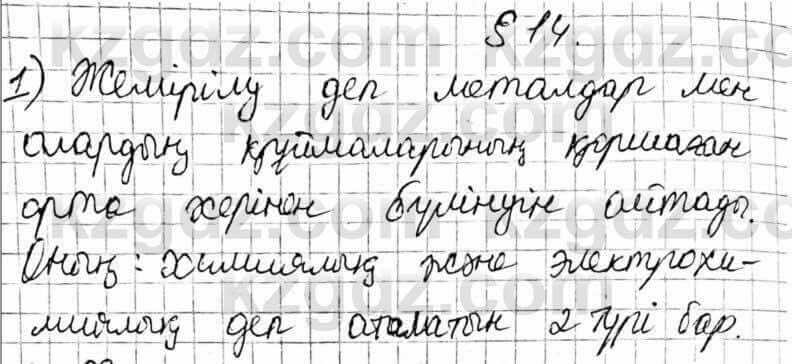 § 14.
1) Жемірілу деп металдар мен
олардың құймаларының қоршаған
орта әсерінен бүлінуін айтады.
Оның: химиялық және электрохи-
миялық деп аталатын 2 түрі бар.